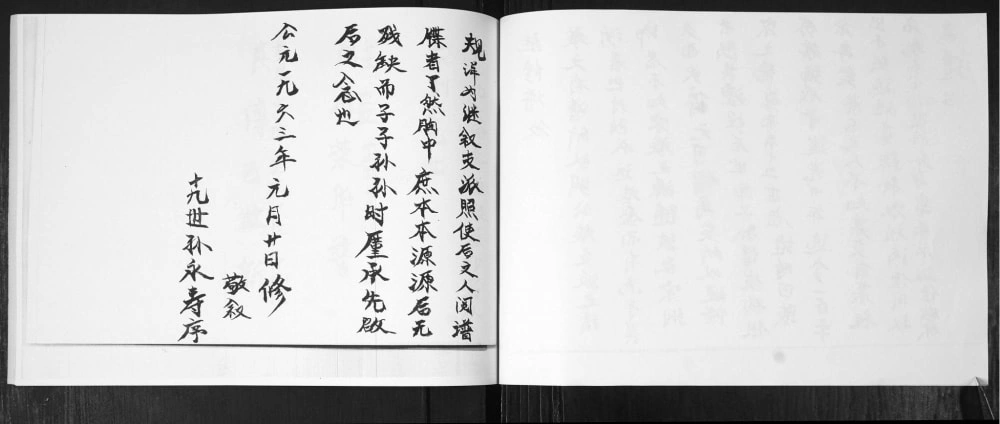 规洋为继叙支派照使后之人阅谱
牒者了然胸中庶本本源源后无
残缺而子子孙孙时廑承先启
后之念也
公元一九六三年元月廿日修
敬叙
十九世孙永寿序